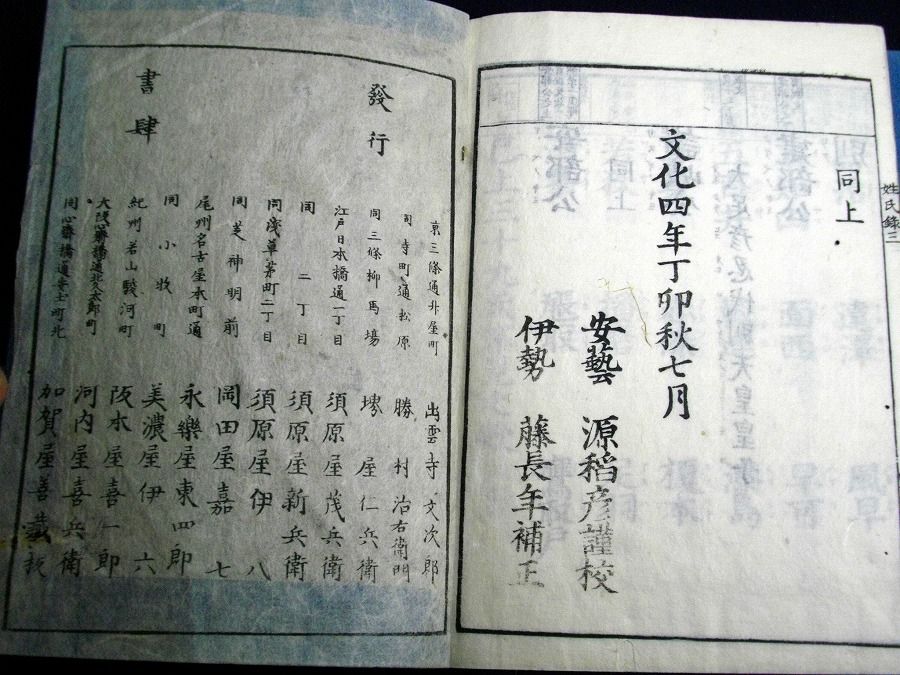 姓氏錄三
同上
文化四年丁卯秋七月
安藝 源稻彦謹校
伊勢 藤長年補正
發行
書肆
京三條通升屋町 出雲寺文次郎
同寺町通松原 勝村治右衞門
同三條柳馬塲 堺屋仁兵衞
江戸日本橋通一丁目 須原屋茂兵衞
同 二丁目 須原屋新兵衞
同淺草茅町二丁目 須原屋伊八
同芝神明前 岡田屋嘉七
尾州名古屋本町通 永樂屋東四郎
同小牧町 美濃屋伊六
紀州若山駿河町 阪本屋喜一郎
大阪心齋橋通北久太郎町 河内屋喜兵衞
同心齋橋通安土町北 加賀屋善藏板